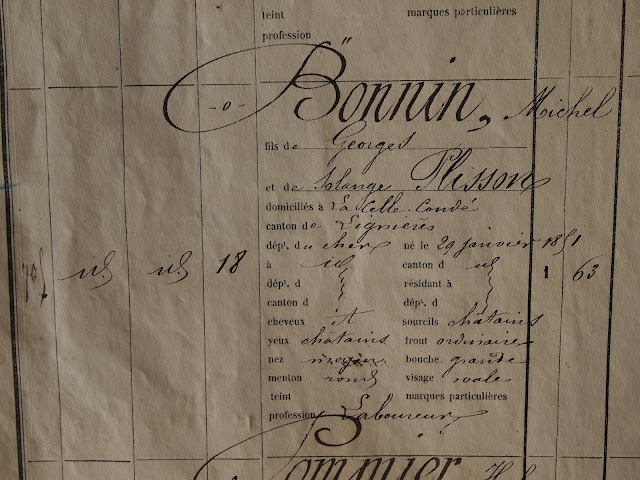 teint marques particulières
profession "
-o- Bonnin, Michel
fils de Georges
et de Solange Plisson
domiciliés à La Celle-Condé
canton de Lignières
dépt. du cher né le 29 janvier 1851
18 à id canton d id 1 63
dépt. d résidant à
canton d dépt. d
cheveux it sourcils châtains
yeux châtains front ordinaire
nez moyen bouche grande
menton rond visage ovale
teint marques particulières
profession Laboureur
Pommier